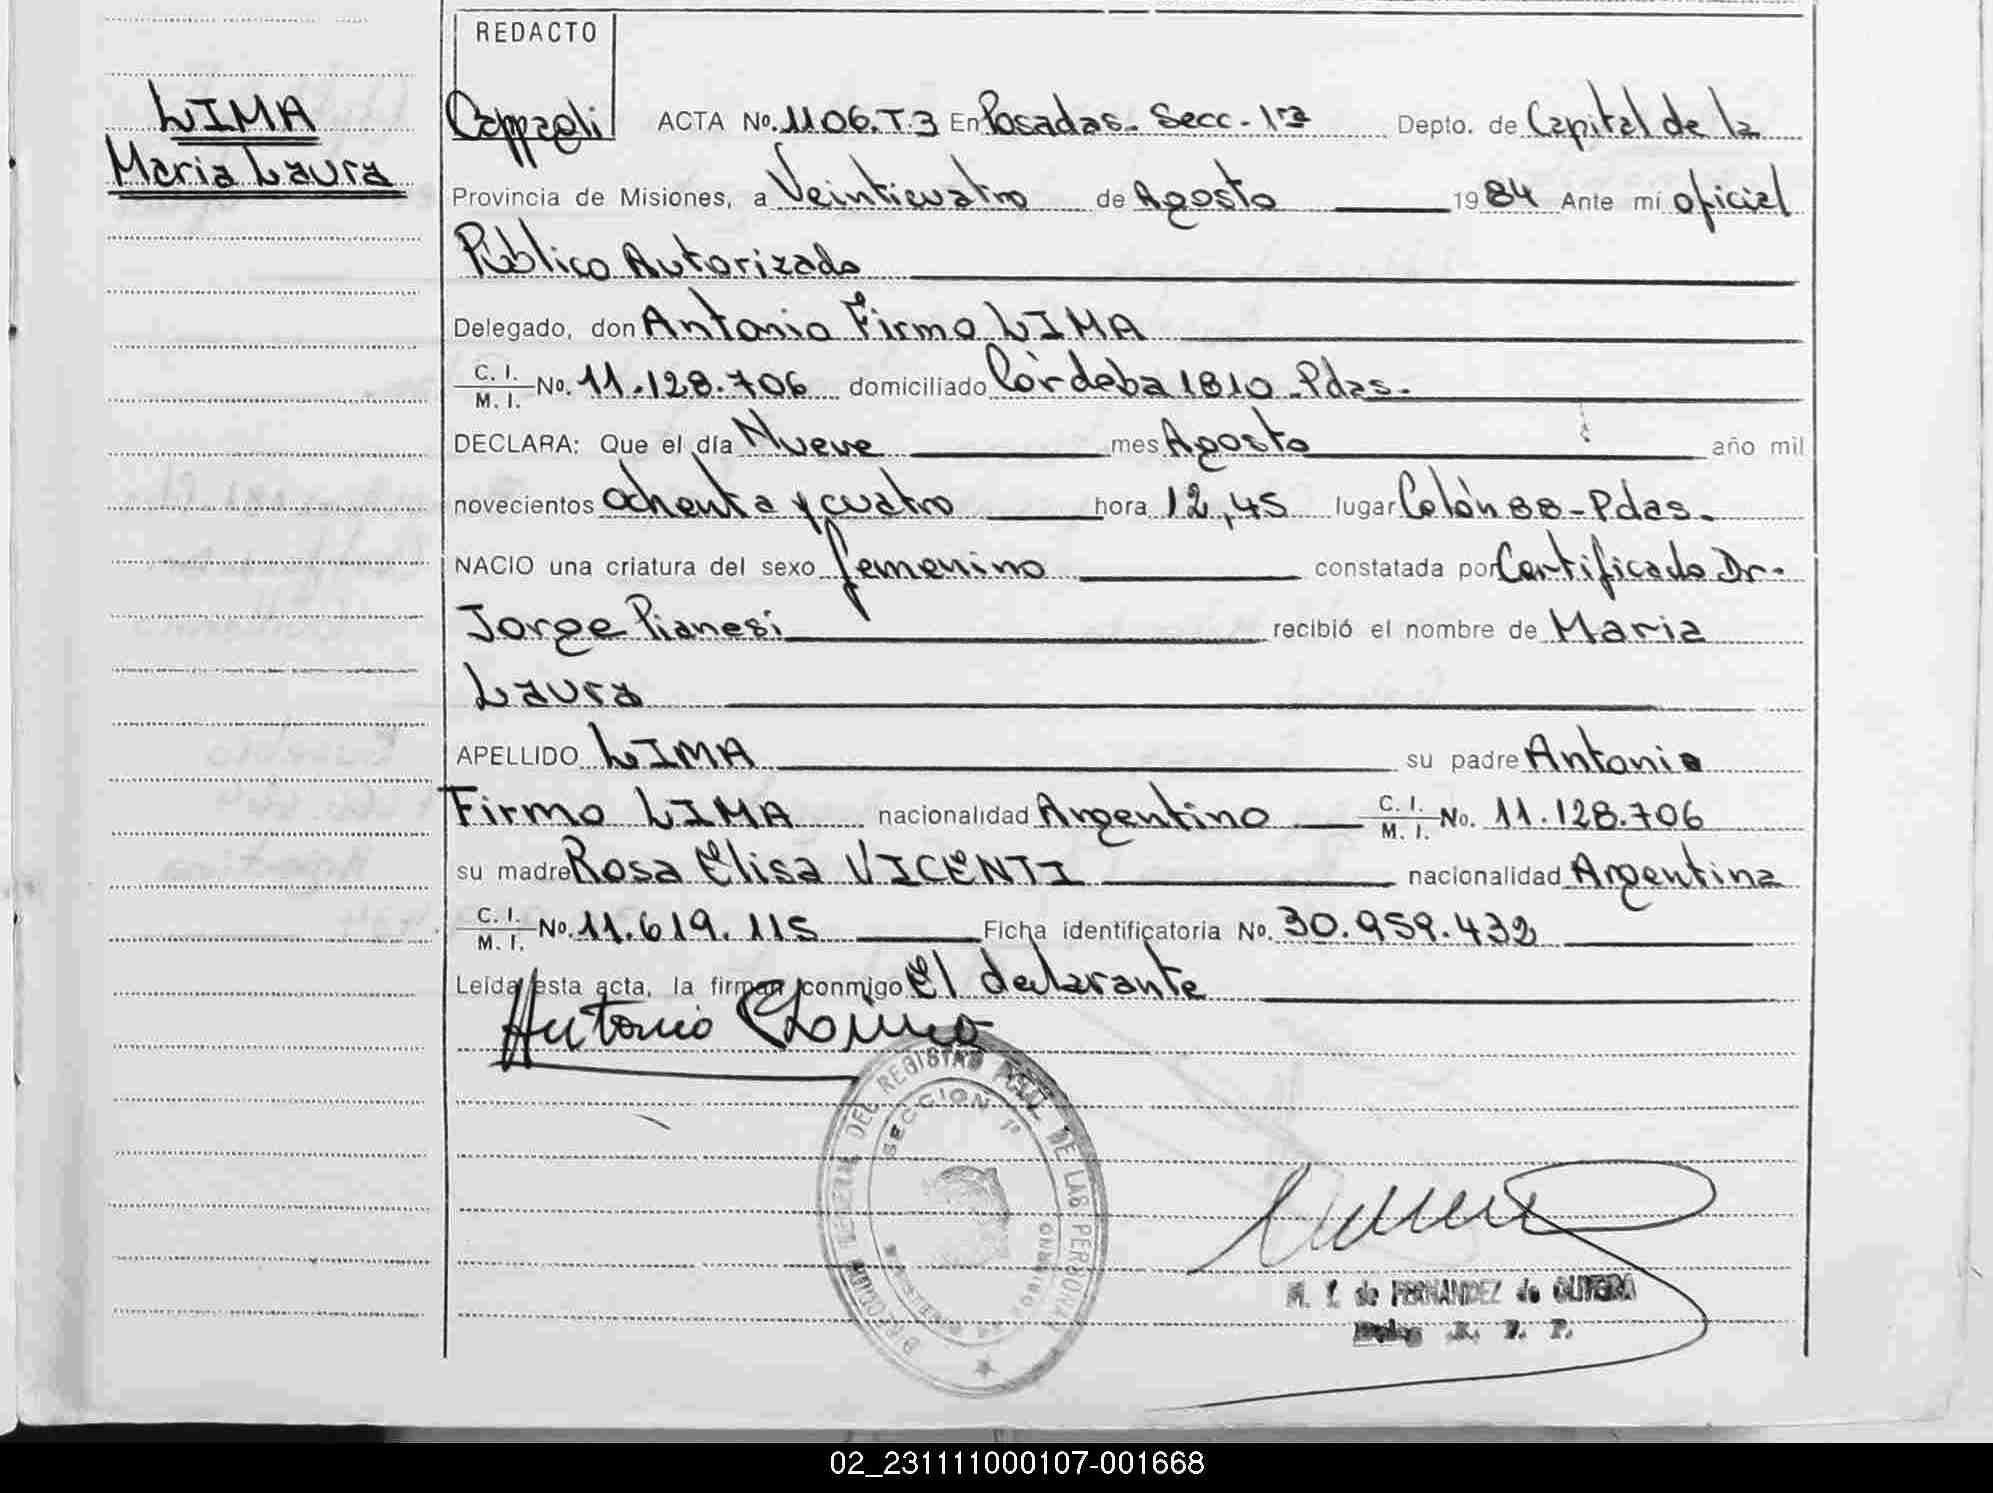 REDACTO
LIMA
Maria Laura
Cappagli ACTA No. 1106.T.3 En Posadas. Secc. 1ª Depto. de Capital de la
Provincia de Misiones, a Veinticuatro de Agosto 1984 Ante mí oficial
Público Autorizado
Delegado, don Antonio Firmo LIMA
C. I. M. I. No. 11.128.706 domiciliado Córdoba 1810 - Pdas.
DECLARA: Que el día Nueve mes Agosto año mil
novecientos ochenta y cuatro hora 12,45 lugar Colón 88 - Pdas.
NACIO una criatura del sexo femenino constatada por Certificado Dr.
Jorge Pianesi recibió el nombre de Maria
Laura
APELLIDO LIMA su padre Antonio
Firmo LIMA nacionalidad Argentino C. I. M. I. No. 11.128.706
su madre Rosa Elisa VICENTI nacionalidad Argentina
C. I. M. I. No. 11.619.115 Ficha identificatoria No. 30.959.432
Leída esta acta, la firman conmigo El declarante
Antonio F Lima
DEL REGISTRO DE LAS PERSONAS
SECCION 1ª
GOBIERNO
de FERNANDEZ de OLIVERA
02_231111000107-001668